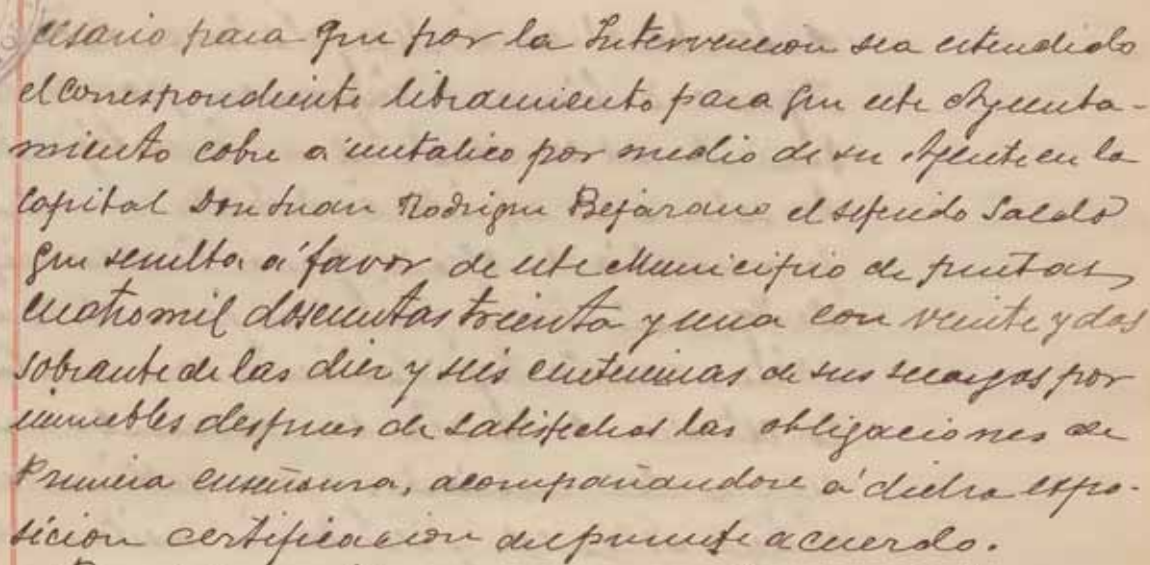 cesario para que por la Intervencion sea estendido
el correspondiente libramiento para que este Ayunta-
miento cobre a metalico por medio de su Agente en la
Capital Don Juan Rodrigue Bejarano el referido Saldo
que resulta á favor de este Municipio de pesetas
cuatromil doscientas treinta y una con veinte y dos
sobrante de las diez y seis centecimas de sus recargos por
inmuebles despues de satisfechas las obligaciones de
Primera enseñanza, acompañandose á dicha expo-
sicion certificacion del presente acuerdo.